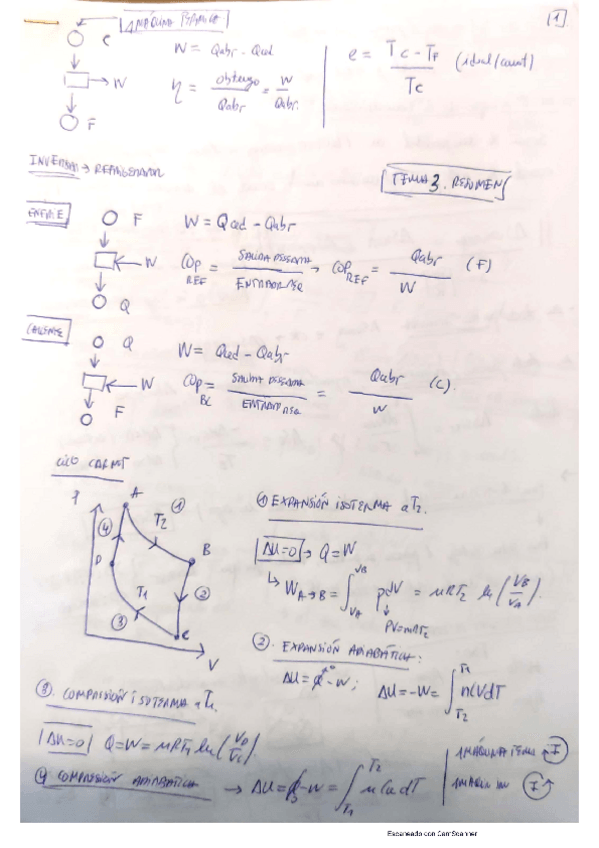 MÁQUINA TÉRMICA
[1]
C
W = Qabr - Qced
→ W
η = obtengo / Qabr = W / Qabr.
F
e = (Tc - TF) / Tc (ideal/carnot)
INVERSA → REFRIGERADOR
TEMA 3. RESUMEN
F
W = Qced - Qabr
← W
COP REF = SALIDA DESEADA / ENTRADA REQ → COP REF = Qabr / W (F)
Q
Q
W = Qced - Qabr
← W
COP BC = SALIDA DESEADA / ENTRADA REQ = Qabr / W (C).
F
CICLO CARNOT
P
A
①
T2
④
B
D
T1
②
③
C
V
① EXPANSIÓN ISOTERMA a T2.
ΔU=0 → Q = W
↳ W A→B = ∫ VA VB pdV = nRT2 ln (VB/VA).
PV=nRT2
② EXPANSIÓN ADIABÁTICA:
ΔU = Q - W; ΔU = -W = ∫ T2 T1 nCVdT
③. COMPRESIÓN ISOTERMA a T1.
|ΔU=0| Q = W = nRT1 ln (VD/VC).
④ COMPRESIÓN ADIABÁTICA → ΔU = Q - W = ∫ T1 T2 nCvdT
1 MÁQUINA TÉRMA
Escaneado con CamScanner